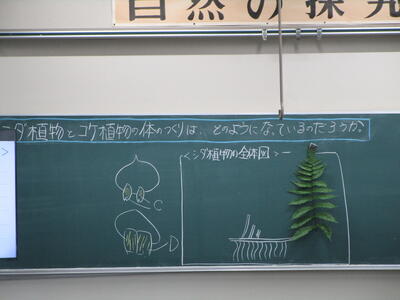 自然の探究
シダ植物とコケ植物の体のつくりは、どのようになっているのだろうか。
<シダ植物の全体図>
C
D